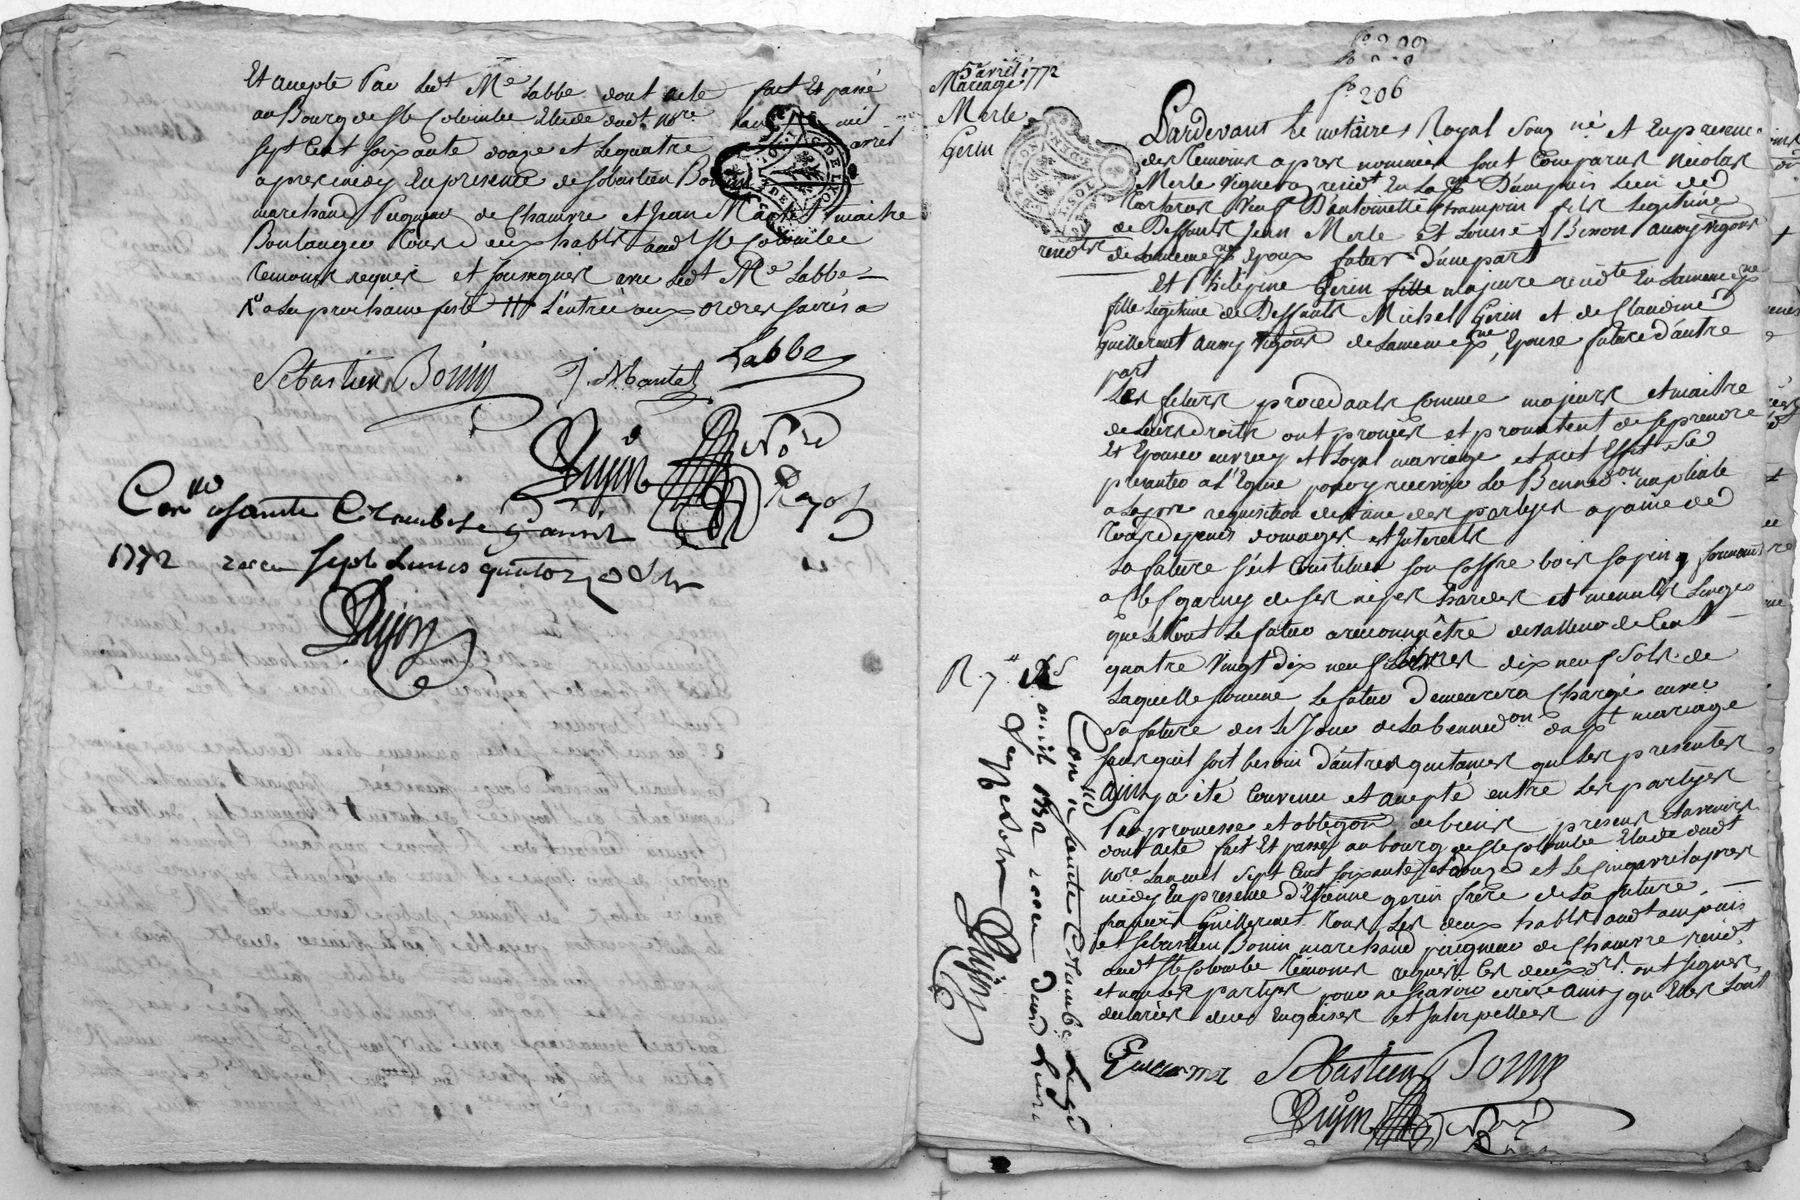 Et accepté Par ledt Me Labbe dont acte fait Et passé
au Bourg de Ste Colombe Etude dudt nore lan mil
sept Cent soixante douze et le quatre avril
apres midy En presence de Sebastien Bonin
marchand Peigneur de Chanvre et Jean Mantet maitre
Boulanger Tous deux habts audt Ste Colombe
temoins requis et soussignés avec ledt Me Labbe
a la prochaine feste l'entrée aux ordres sacrés
Labbe
Sebastien Bonin J. Mantet
Dujon Nore
Royal
Conlle a Sainte Colombe le 9 avril
1772 recu sept Livres quatorze sols
Dujon
fo 206
5 avril 1772
Mariage
Merle
Gerin
Pardevant le notaire Royal soug né et En presence
des temoins apres nommés sont Comparus nicolas
Merle vigneron residt En la psse D'ampuis lieu de
Tartaras veuf D'antoinette champin fils legitime
de Deffunts Jean Merle et Louise Bonon
residts de la meme psse Epoux futur D'une part
Et Philipine Gerin fille majeure residte En la meme psse
fille legitime de Deffunts Michel Gerin et de Claudine
Guillermet de la meme psse, Epouse future d'autre
part
Les futurs procedants comme majeurs et maitre
de leurs droits ont promis et promettent de se prendre
Et Epouser en vray et loyal mariage et a cet Effet se
presenter a l'Eglise pour y recevoir la Bennedon nuptiale
a la pre requisition de l'une des partyes a peine de
tous depens domages et interets
La future s'est Constituée son coffre bois sapin fermant
a Clef garny de ses nipes hardes et menus linges
que le tout le futur a reconnu être de valleur de Cent
quatre vingt dix neuf Livres dix neuf sols de
laquelle somme le futur demeurera Chargé envers
sa future des le Jour de la bennedon du pt mariage
sans qu'il soit besoin d'autres quitances que les presentes
Ainsy a été Convenu et accepté entre les partyes
Par promesse et obligon de biens presens et avenirs
dont acte fait Et passé au bourg de Ste Colombe Etude dudt
nore Lan mil sept Cent soixante et douze et le cinq avril apres
midy En presence d'Etienne gerin frere de la future
francois Guillermet Tous les deux habts audt ampuis
et sebastien Bonin marchand peigneur de chanvre residt
audt Ste Colombe temoins requis Ces deux drs ont signés
et non les partyes pour ne scavoir ecrire ainsy qu'Elles l'ont
declarées de ce Enquises et Interpellées
Guillermet Sebastien Bonin
Dujon Nore
Conlle a Sainte Colombe le 9e
avril 1772 recu deux Livres
sept sols
Dujon